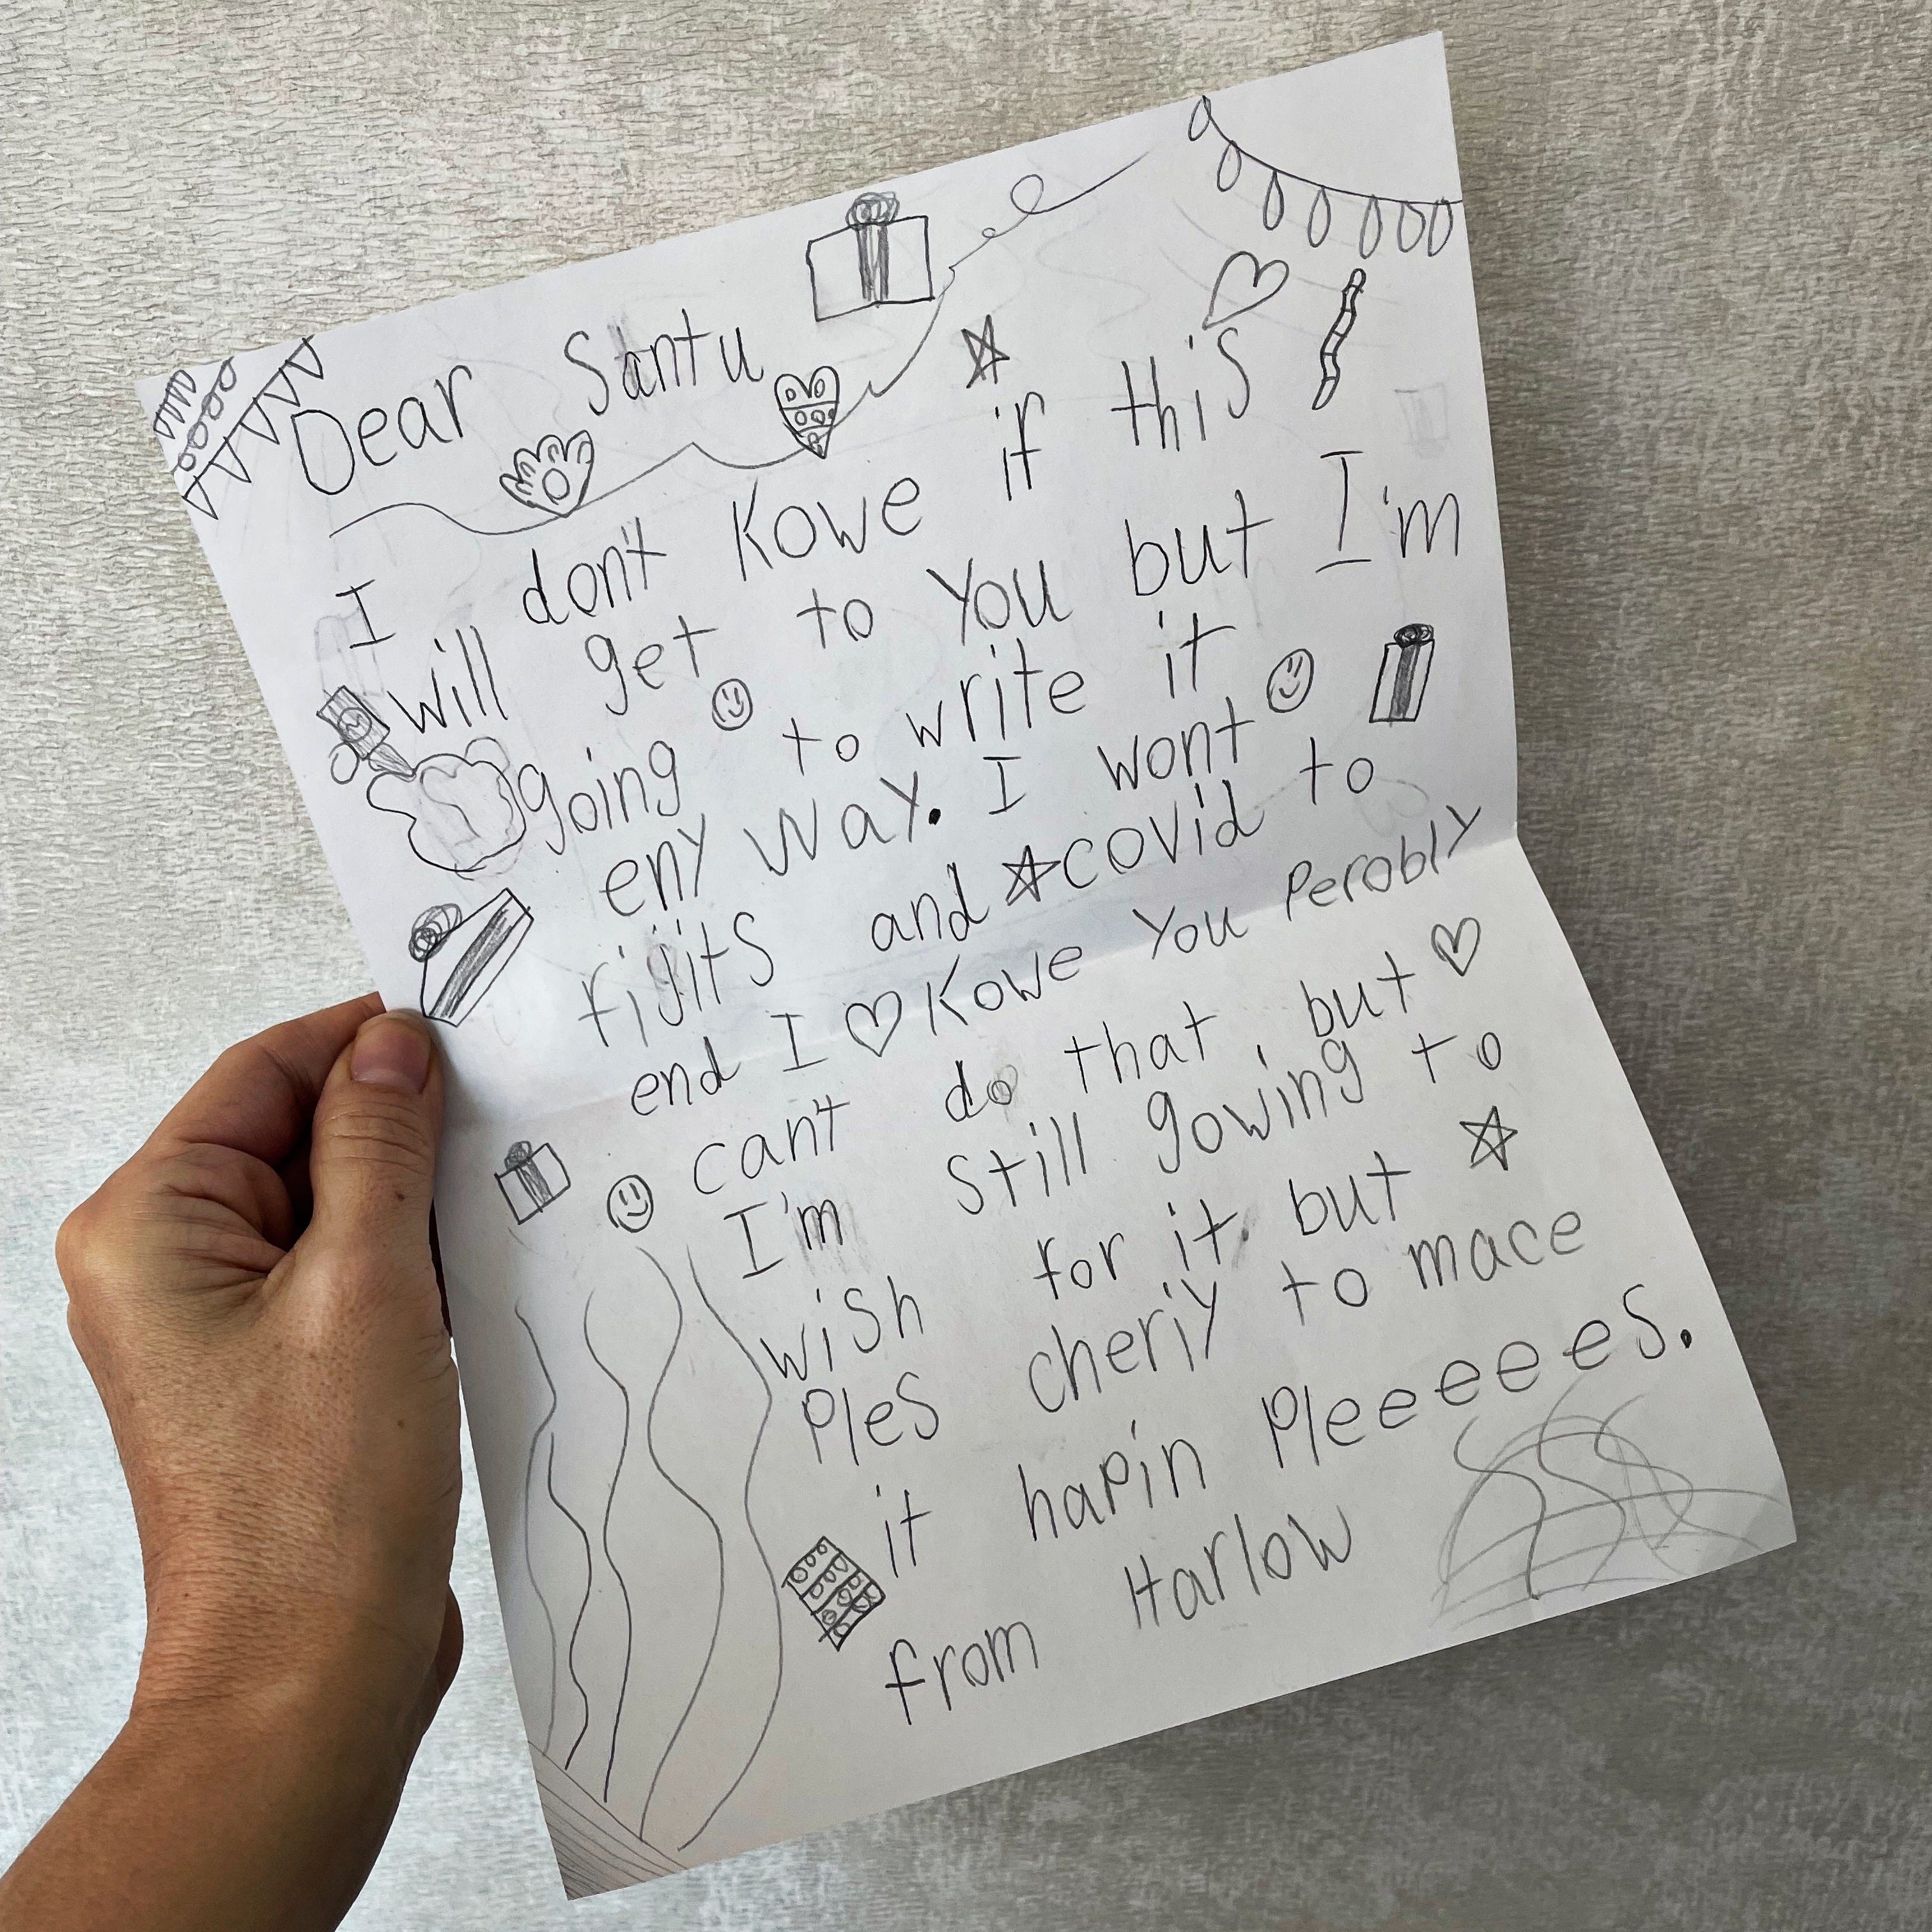 Dear Santu
I don't Kowe if this
will get to You but I'm
going to write it
eny way. I wont
fijits and covid to
end I Kowe You Perobly
can't do that, but
I'm still gowing to
wish for it, but
Ples cheriy to mace
it hapin Pleeeees.
from Harlow